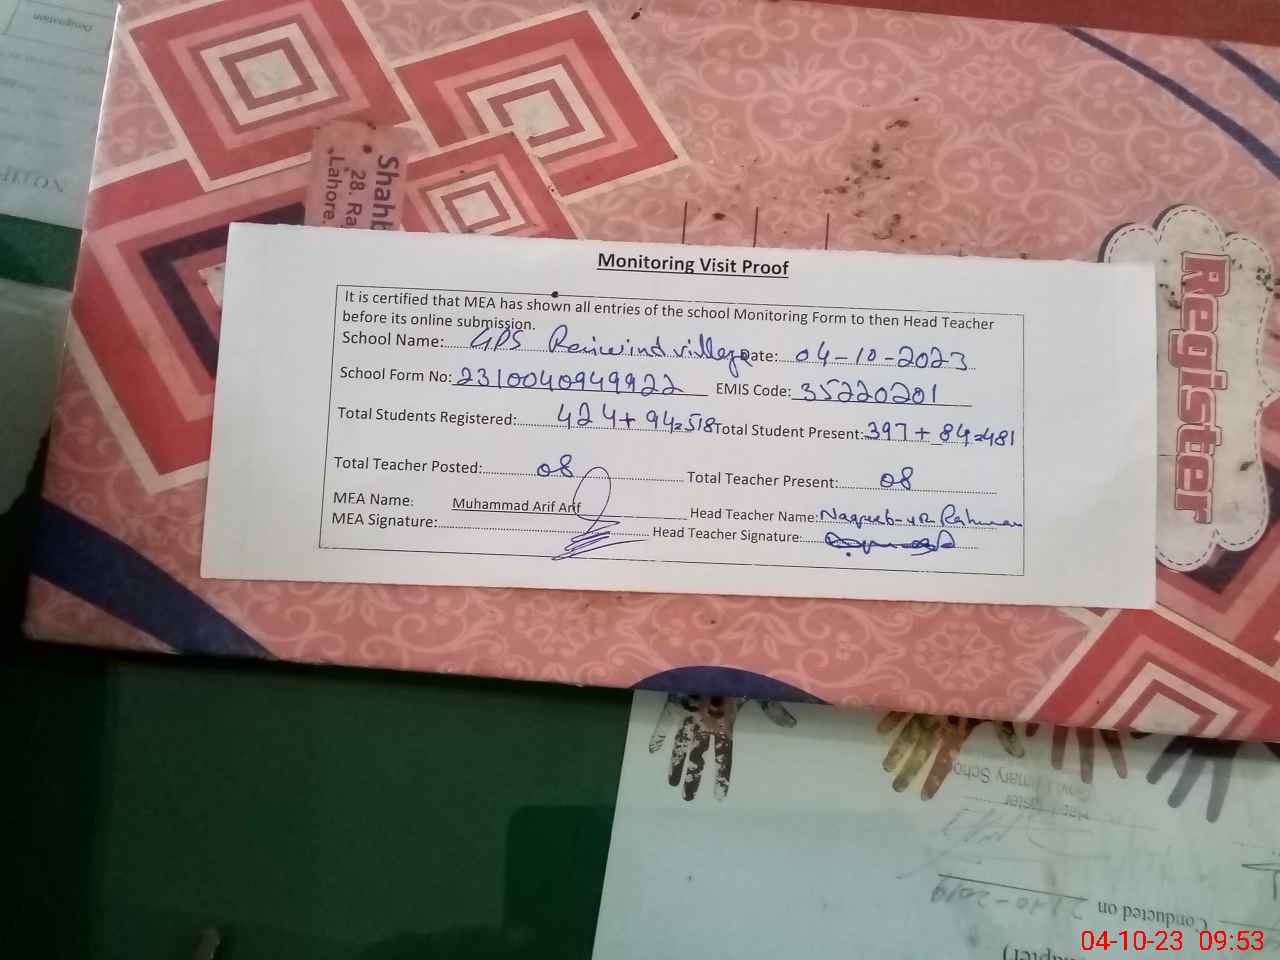 Designation
Shahb
28. Ra
Lahore.
Register
Monitoring Visit Proof
It is certified that MEA has shown all entries of the school Monitoring Form to then Head Teacher
before its online submission.
School Name: GPS Raiwind village Date: 04-10-2023
School Form No: 2310040949922 EMIS Code: 35220201
Total Students Registered: 424+94=518 Total Student Present: 397+84=481
Total Teacher Posted: 08 Total Teacher Present: 08
MEA Name: Muhammad Arif Arif Head Teacher Name: Naqeeb-ur Rahman
MEA Signature: Head Teacher Signature:
Conducted on 21-10-2019
04-10-23 09:53